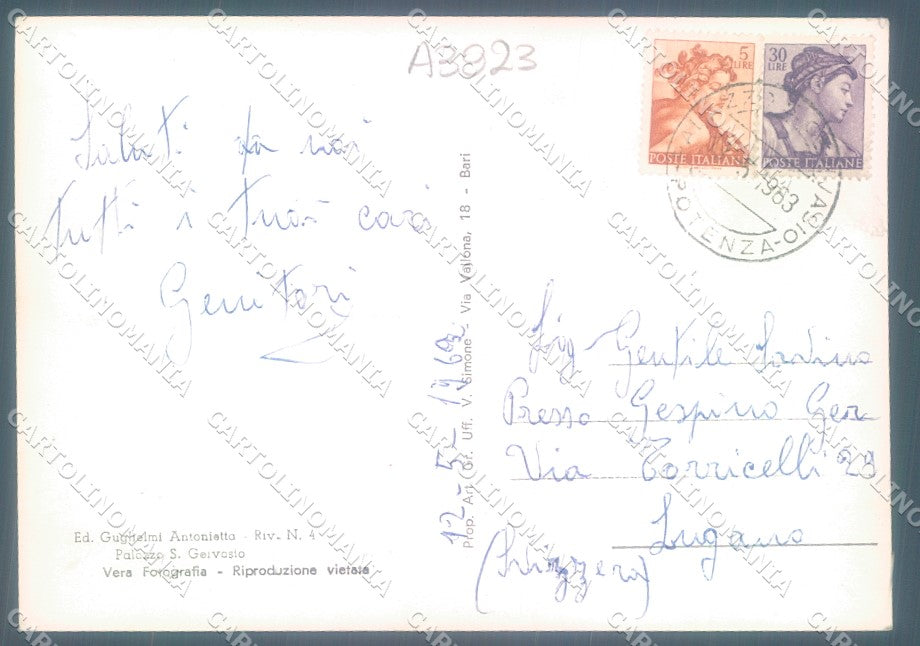 A3923
5
LIRE
POSTE ITALIANE
30
LIRE
POSTE ITALIANE
1963
POTENZA
Saluti da noi
tutti i tuoi cari
Genitori
12-5-1963
Prop. Art. Gr. Uff. V. Simone - Via Vallona, 18 - Bari
Sig Gentile Savino
Presso Gespino Ger
Via Torricelli 23
Lugano
(Svizzera)
Ed. Guglielmi Antonietta - Riv. N. 4
Palazzo S. Gervasio
Vera Fotografia - Riproduzione vietata
CARTOLINOMANIA